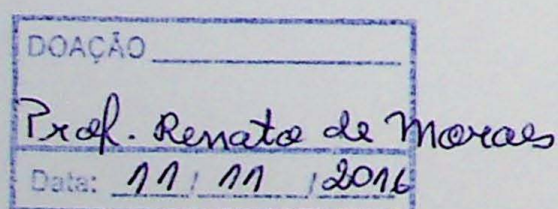 DOAÇÃO
Prof. Renato de Moraes
Data: 11 / 11 / 2016